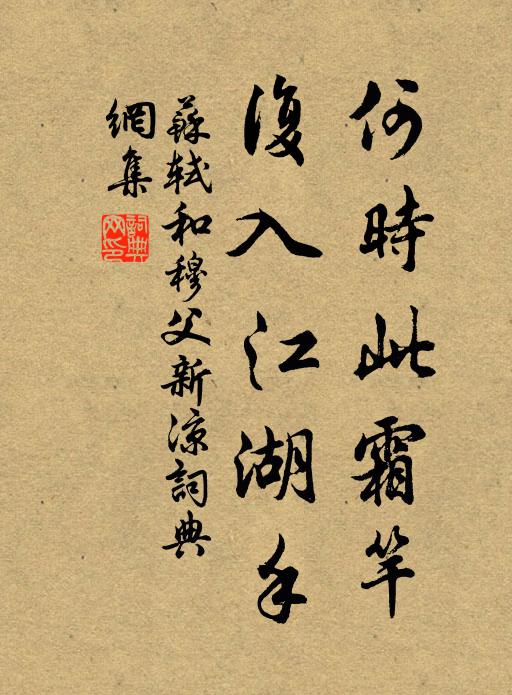 何時此霜竿
復入江湖手
蘇軾和穆父新涼詞典
網集
詞典網印